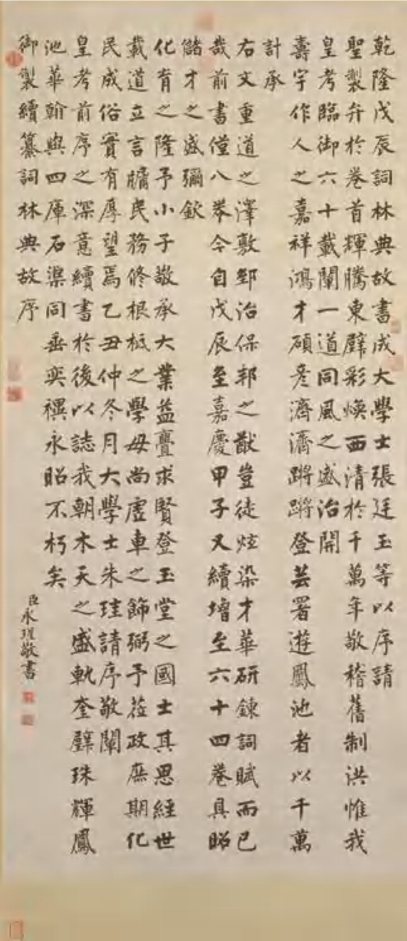 乾隆戊辰詞林典故書成大學士張廷玉等以序請
聖製弁於卷首琿騰東壁彩煥西清於千萬年敬稽舊制洪惟我
皇考臨御六十載闡一道同風之盛治開
壽宇作人之嘉祥鴻才碩彥濟濟蹌蹌登芸署遊鳳池者以千萬
計承
右文重道之澤敷郅治保邦之猷豈徒炫染才華研鍊詞賦而已
哉前書僅八卷今自戊辰至嘉慶甲子又續增至六十四卷具昭
儲才之盛彌欽
化育之隆予小子敬承大業益亹求賢登玉堂之國士其思經世
載道立言牖民務修根柢之學毋尚虛車之飾弼予蒞政庶期化
民成俗實有厚望焉乙丑仲冬月大學士朱珪請序敬闡
皇考前序之深意續書於後以誌我朝木天之盛軌奎壁珠輝鳳
池華翰與四庫石渠同垂奕禩永昭不朽矣
御製續纂詞林典故序
臣永瑆敬書